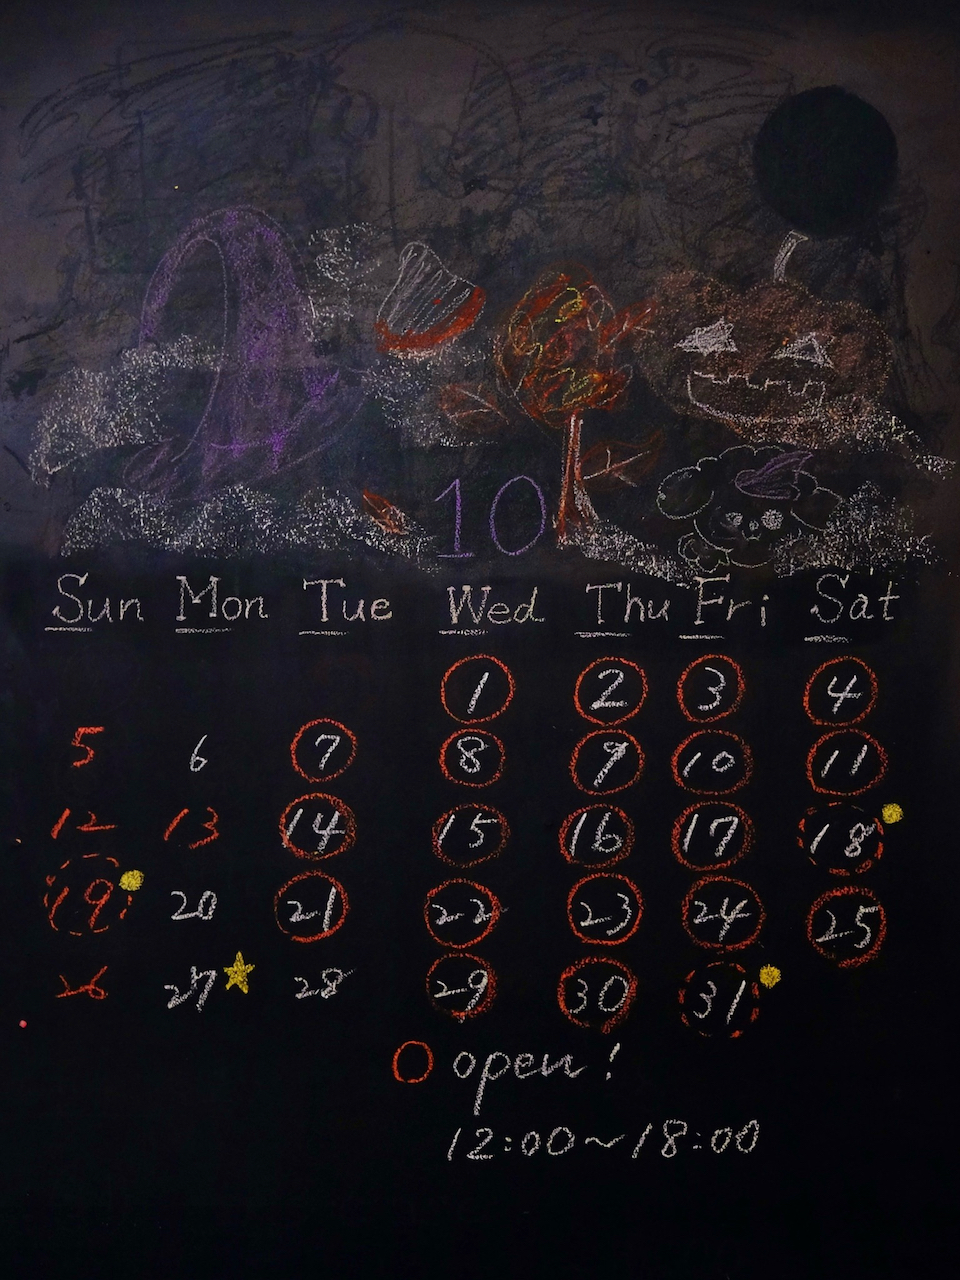 10
Sun Mon Tue Wed Thu Fri Sat
1 2 3 4
5 6 7 8 9 10 11
12 13 14 15 16 17 18
19 20 21 22 23 24 25
26 27 28 29 30 31
open!
12:00~18:00